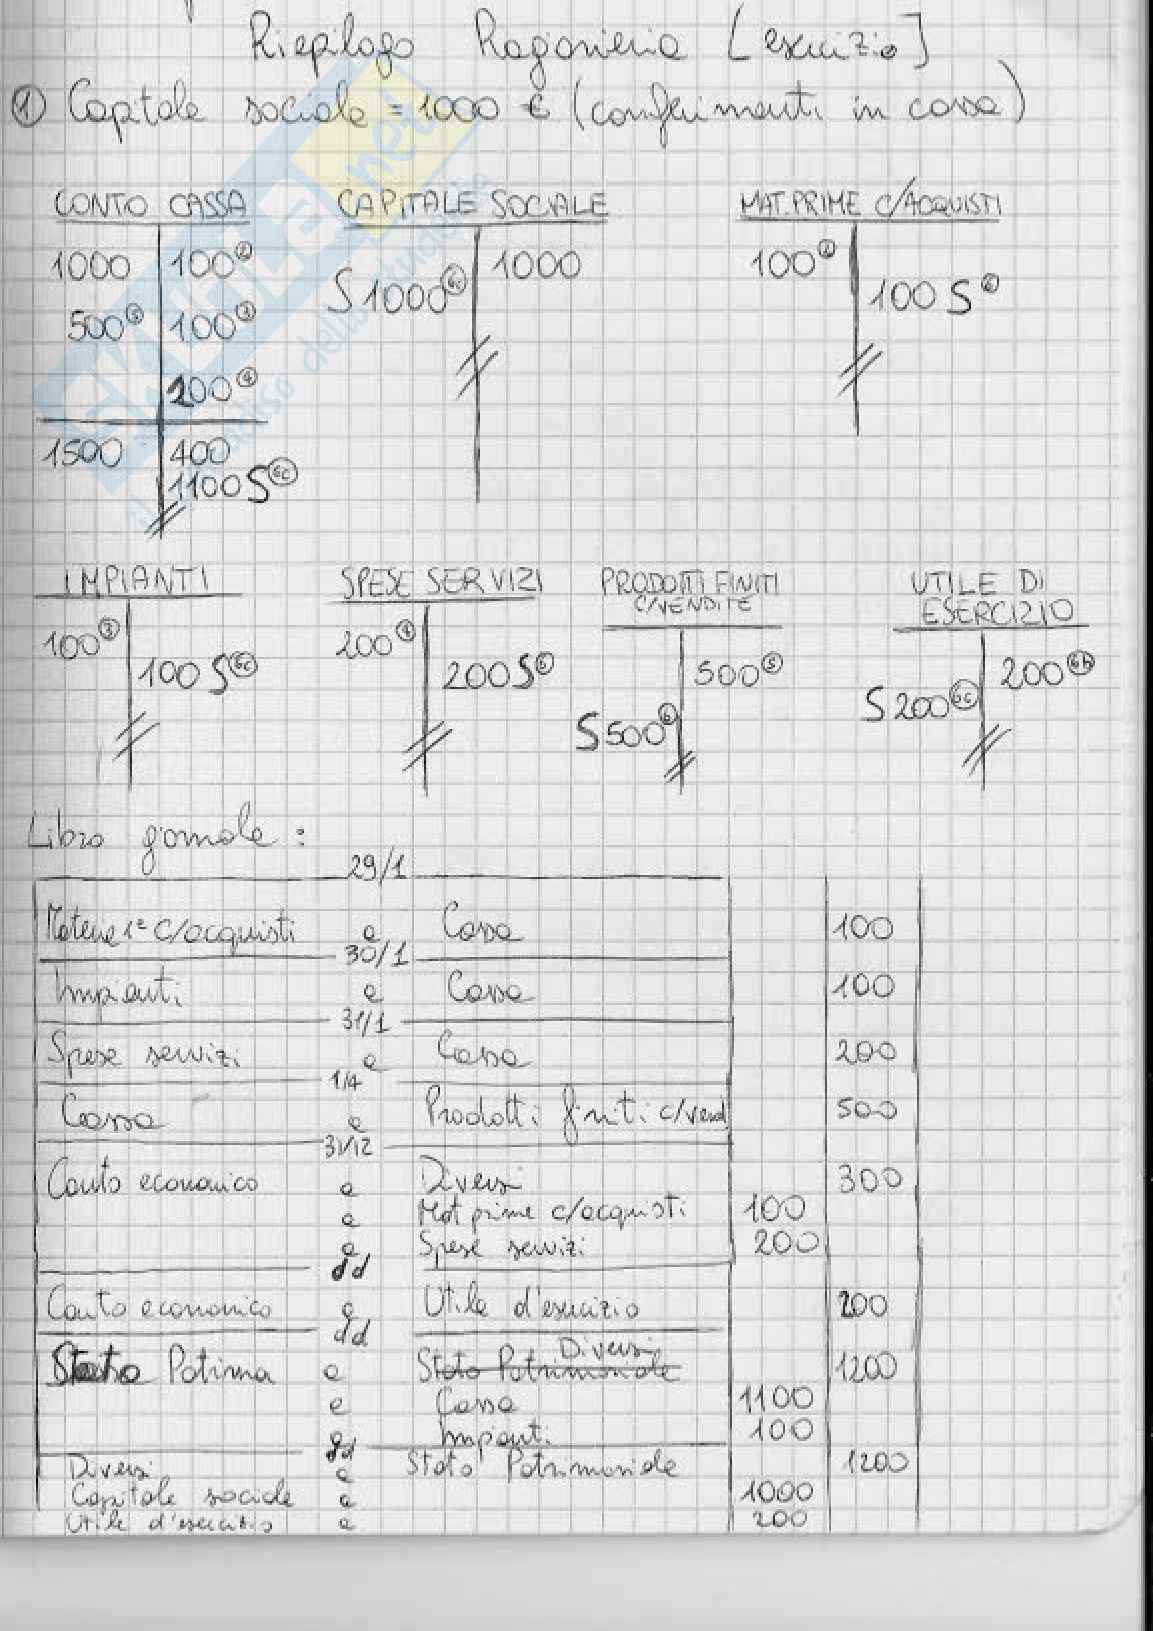 Riepilogo Ragioneria [esercizio]
① Capitale sociale = 1000 € (conferimenti in cassa)
CONTO CASSA CAPITALE SOCIALE MAT.PRIME C/ACQUISTI
1000 100② 1000 100②
S 1000⑥c 100 S⑥
500⑤ 100③
200④
1500 400
1100 S⑥c
IMPIANTI SPESE SERVIZI PRODOTTI FINITI UTILE DI
C/VENDITE ESERCIZIO
100③ 200④ 500⑤ 200⑥b
100 S⑥c 200 S⑥ S 200⑥c
S 500⑥
Libro giornale :
29/1
Materie 1e c/acquisti a Cassa 100
30/1
Impianti a Cassa 100
31/1
Spese servizi a Cassa 200
1/4
Cassa a Prodotti finiti c/vend 500
31/12
Conto economico a Diversi 300
a Mat prime c/acquisti 100
a Spese servizi 200
dd
Conto economico a Utile d'esercizio 200
dd
Diversi
Stato Patrima a Stato Patrimoniale 1200
a Cassa 1100
Impianti 100
dd
Diversi a Stato Patrimoniale 1200
Capitale sociale a 1000
Utile d'esercizio a 200